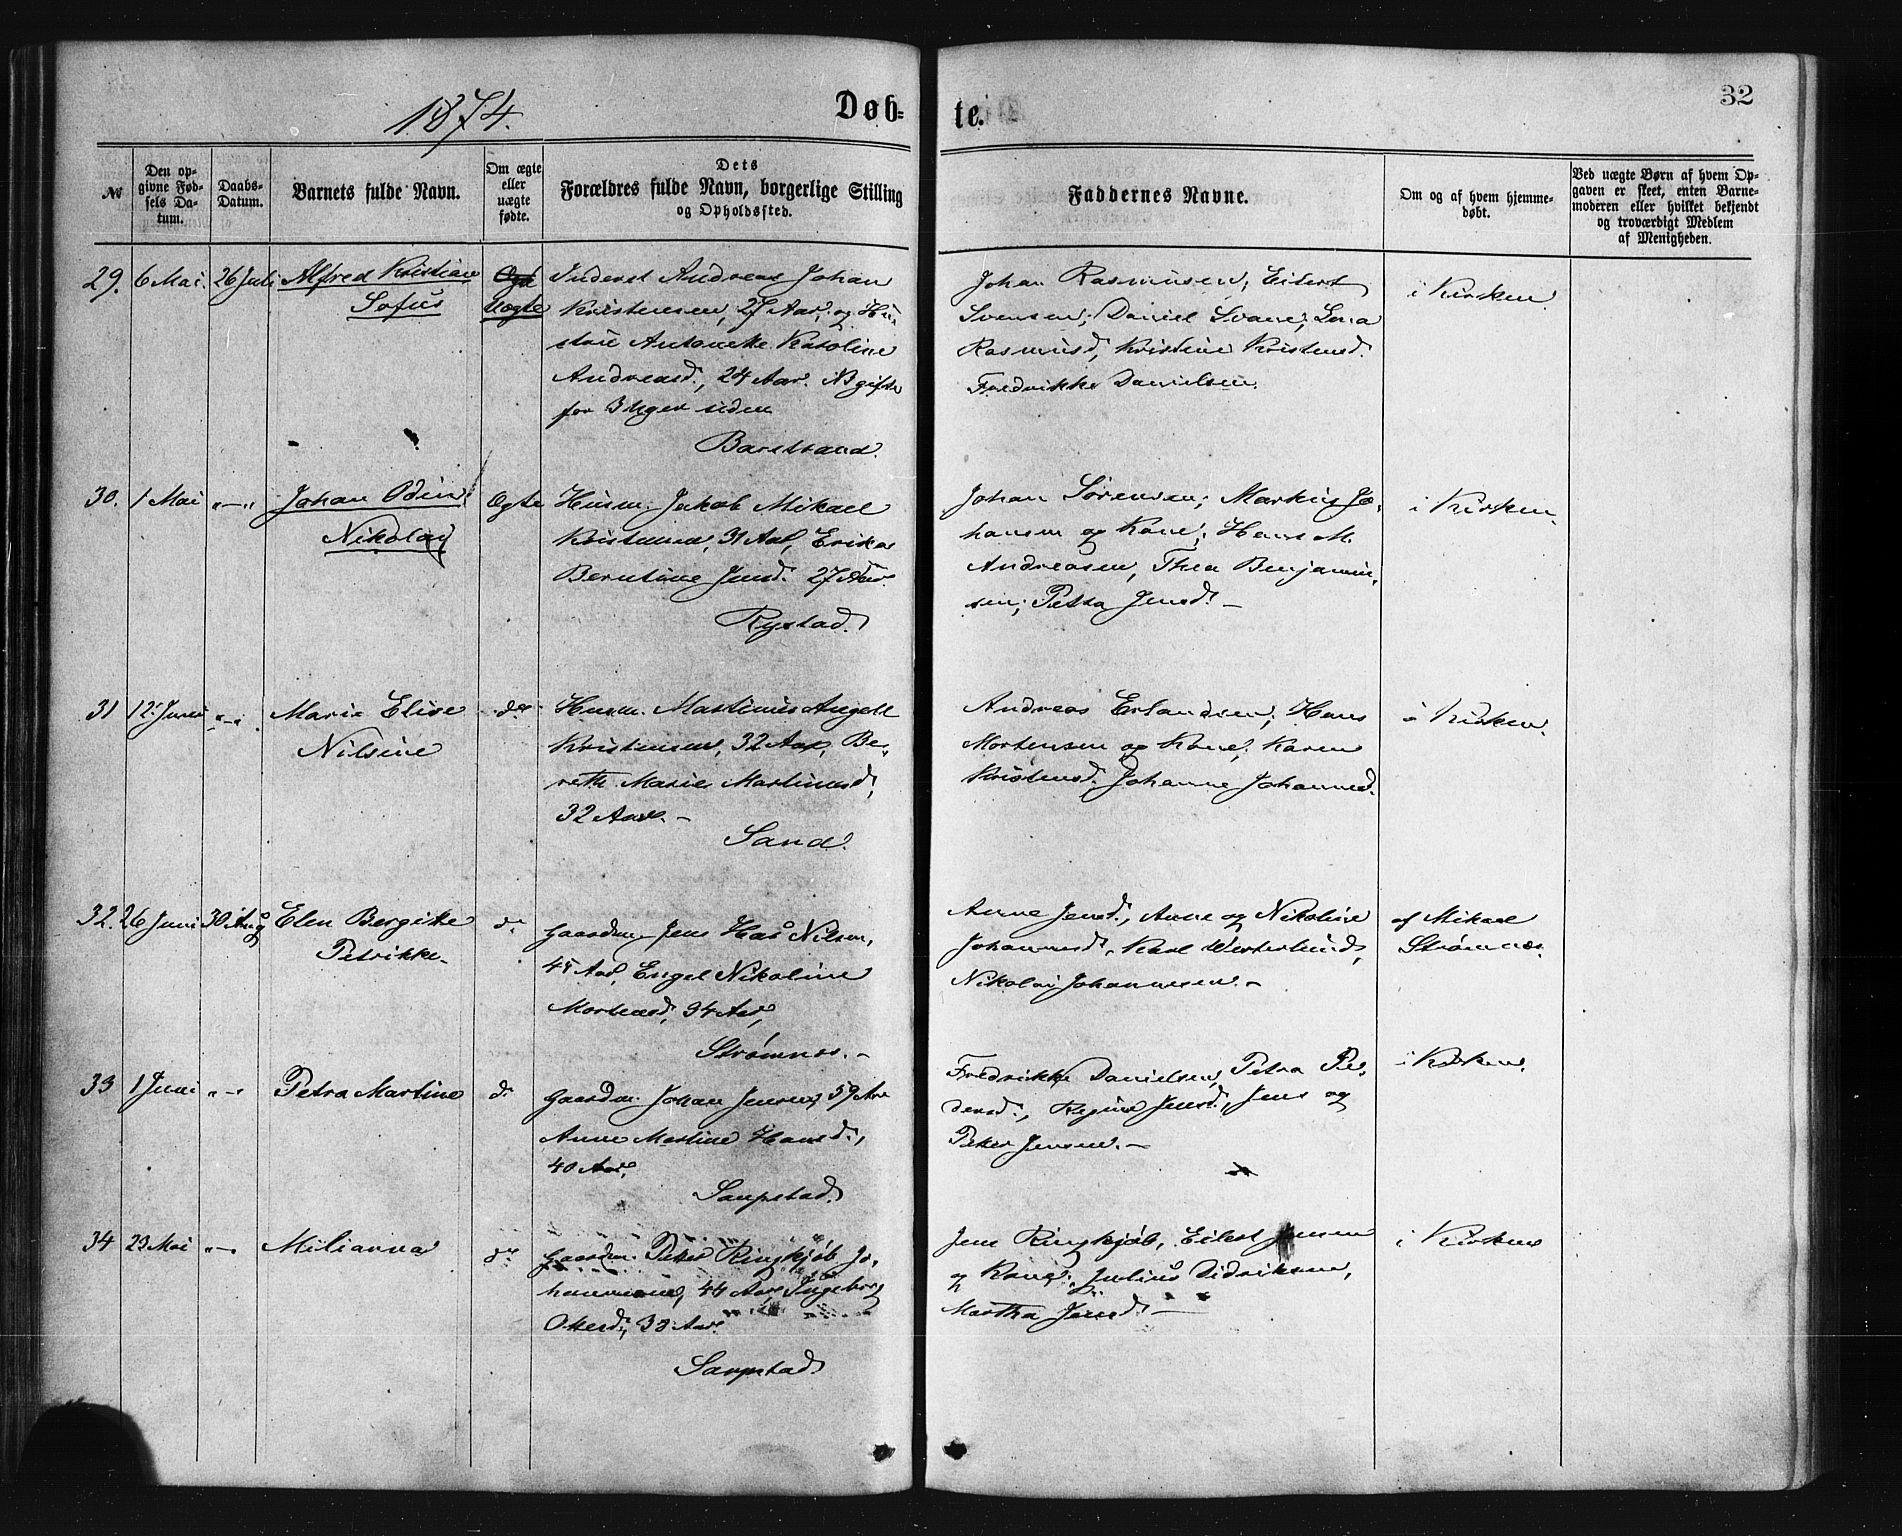 1874.
Døb=
te.
32
№
Den op-
givne Fød-
sels Da-
tum.
Daabs-
Datum.
Barnets fulde Navn.
Om ægte
eller
uægte
fødte.
Dets
Forældres fulde Navn, borgerlige Stilling
og Opholdssted.
Faddernes Navne.
Om og af hvem hjemme-
døbt.
Ved uægte Børn af hvem Op-
gaven er skeet, enten Barne-
moderen eller hvilket bekjendt
og troværdigt Medlem
af Menigheden.
29. 6 Mai. 26 Juli Alfred Kristian
Sofus
Uægte
Inderst Andreas Johan
Kristensen, 27 Aar, og Hu-
stru Antonette Karoline
Andreasd., 24 Aar. NB gifte
for 3 Uger siden
Barstrand.
Johan Rasmussen, Eilert
Svensen, Daniel Svane, Lena
Rasmusd, Kristine Kristensd.
Fredrikke Danielsen.
i Kirken
30. 1 Mai "—" Johan Odin
Nikolai
Ægte
Husm. Jakob Mikael
Kristensen, 31 Aar, Erika
Berntine Jensd. 27 Aar.
Rystad.
Johan Sørensen, Markus Jo-
hansen og Kone, Hans M.
Andreasen, Thea Benjamin-
sen, Petra Jensd. —
i Kirken.
31 12 Juni "—" Marie Elise
Nilsine
do
Husm. Martinus Angell
Kristensen, 32 Aar, Be-
reth Marie Martinusd,
32 Aar. —
Sand.
Andreas Erlandsen, Hans
Mortensen og Kone, Karen
Kristensd, Johanne Johannesd.
i Kirken.
32. 26 Juni 30 Aug Elen Bergitte
Petrikke.
do
Gaardm. Jens Haß Nilsen,
45 Aar, Engel Nikoline
Mortensd, 34 Aar,
Strømnes. —
Anne Jensd., Anne og Nikoline
Johannesd, Karl Westerlund,
Nikolai Johannesen. —
af Mikael
Strømnes.
33 1 Juni "—" Petra Martine
do
Gaardm. Johan Jensen, 59 Aar
Anne Martine Hansd.,
40 Aar,
Saupstad.
Fredrikke Danielsen, Petra Pe-
dersd., Regine Jensd., Jens og
Peter Jensen. —
i Kirken.
34 23 Mai "—" Milianna
do
Gaardm. Peter Ringkjøb Jo-
hannesen, 44 Aar, Ingeborg
Olsesd., 38 Aar.
Saupstad
Jens Ringkjøb, Eilert Jensen
og Kone, Julius Didriksen,
Martha Jensd. —
i Kirken